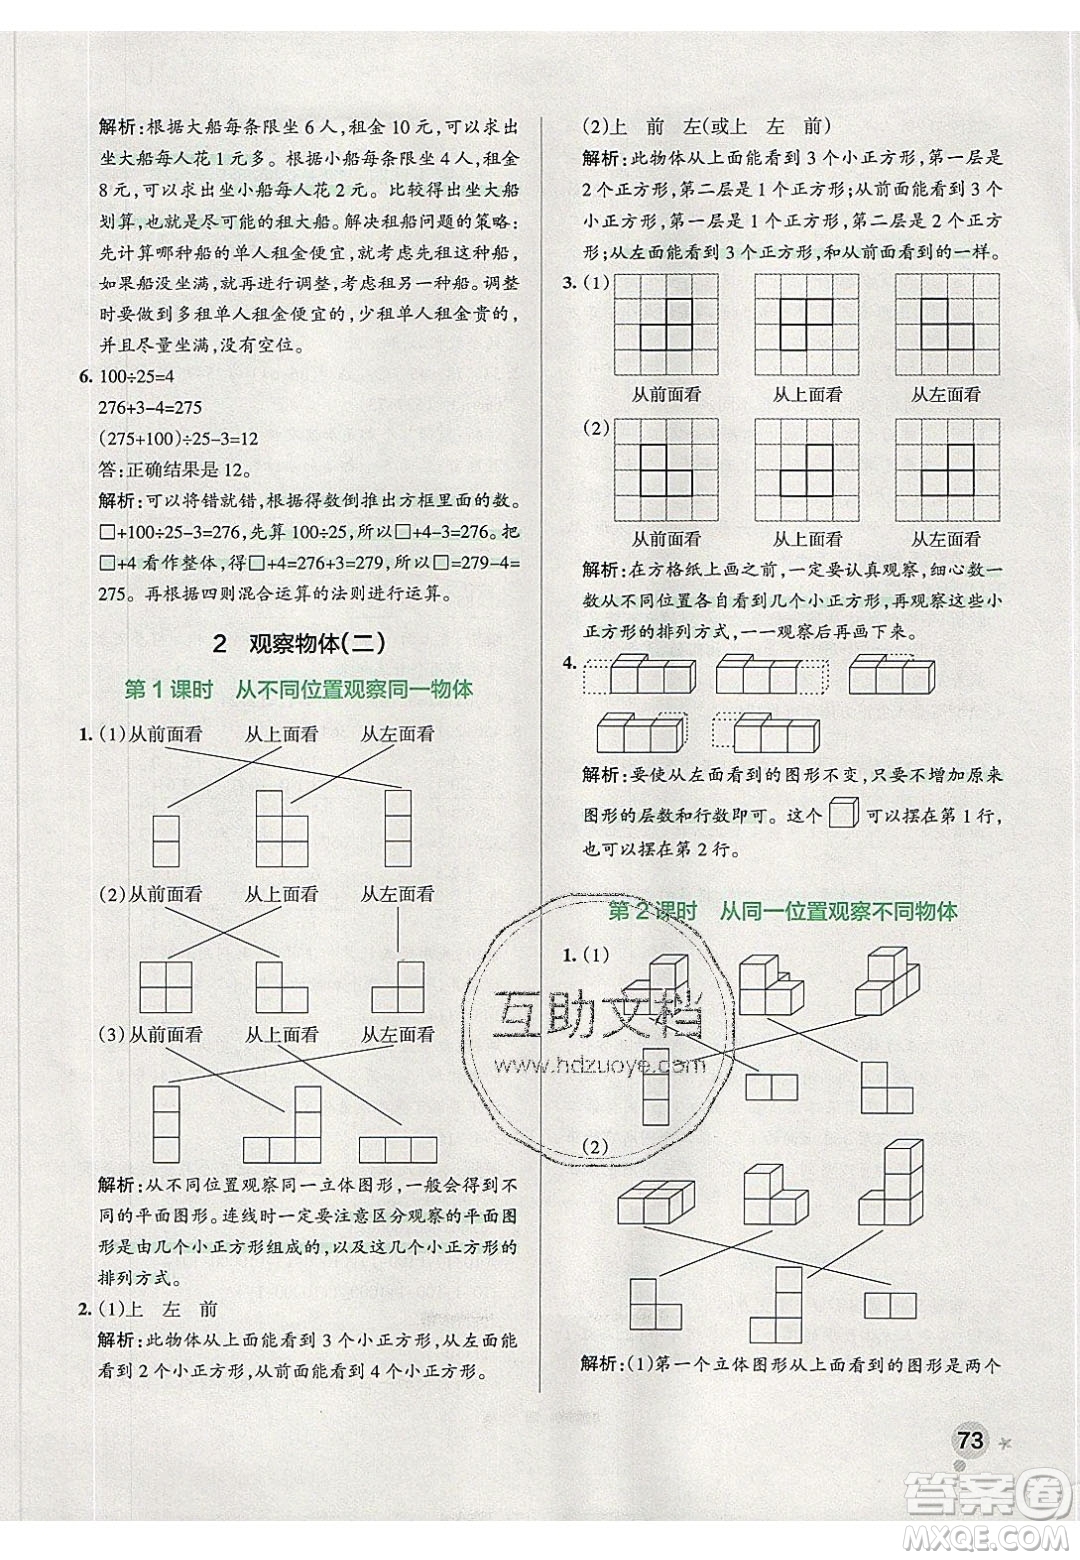 解析:根据大船每条限坐6人,租金10元,可以求出
坐大船每人花1元多。根据小船每条限坐4人,租金
8元,可以求出坐小船每人花2元。比较得出坐大船
划算,也就是尽可能的租大船。解决租船问题的策略:
先计算哪种船的单人租金便宜,就考虑先租这种船,
如果没坐满,就再进行调整,考虑租另一种船。同学
时要做到多租单人租金便宜的,少租单人租金贵的,
并且尽量坐满,没有空位。
6. 100÷25=4
276+3-4=275
(275+100)÷25-3=12
答:正确结果是12。
解析:可以将错就错,根据得数倒推出方框里面的数。
□+100÷25-3=276,先算100÷25,所以□+4-3=276。把
□+4看作整体,得□+4=276+3=279,所以□=279-4=
275。再根据四则混合运算的法则进行运算。
2 观察物体(二)
第1课时 从不同位置观察同一物体
1. (1)从前面看 从上面看 从左面看
(2)从前面看 从上面看 从左面看
(3)从前面看 从上面看 从左面看
解析:从不同位置观察同一立体图形,一般会得到不
同的平面图形。连线时一定要注意区分观察的平面图
形是由几个小正方形组成的,以及这几个小正方形的
排列方式。
2. (1)上 左 前
解析:此物体从上面能看到3个小正方形,从左面能
看到2个小正方形,从前面能看到4个小正方形。
(2)上 前 左(或上 左 前)
解析:此物体从上面能看到3个小正方形,第一层是
2个正方形,第二层是1个正方形;从前面能看到3个
小正方形,第一层是1个正方形,第二层是2个正方
形;从左面能看到3个正方形,和从前面看到的一样。
3. (1)
从前面看 从上面看 从左面看
(2)
从前面看 从上面看 从左面看
解析:在方格纸上画之前,一定要认真观察,细心数一
数从不同位置各自看到几个小正方形,再观察这些小
正方形的排列方式,一一观察后再画下来。
4.
解析:要使从左面看到的图形不变,只要不增加原来
图形的层数和行数即可。这个 可以摆在第1行,
也可以摆在第2行。
第2课时 从同一位置观察不同物体
1. (1)
(2)
解析:(1)第一个立体图形从上面看到的图形是两个
73
互助文档
www.hdzuoye.com
答案圈
MXQE.COM